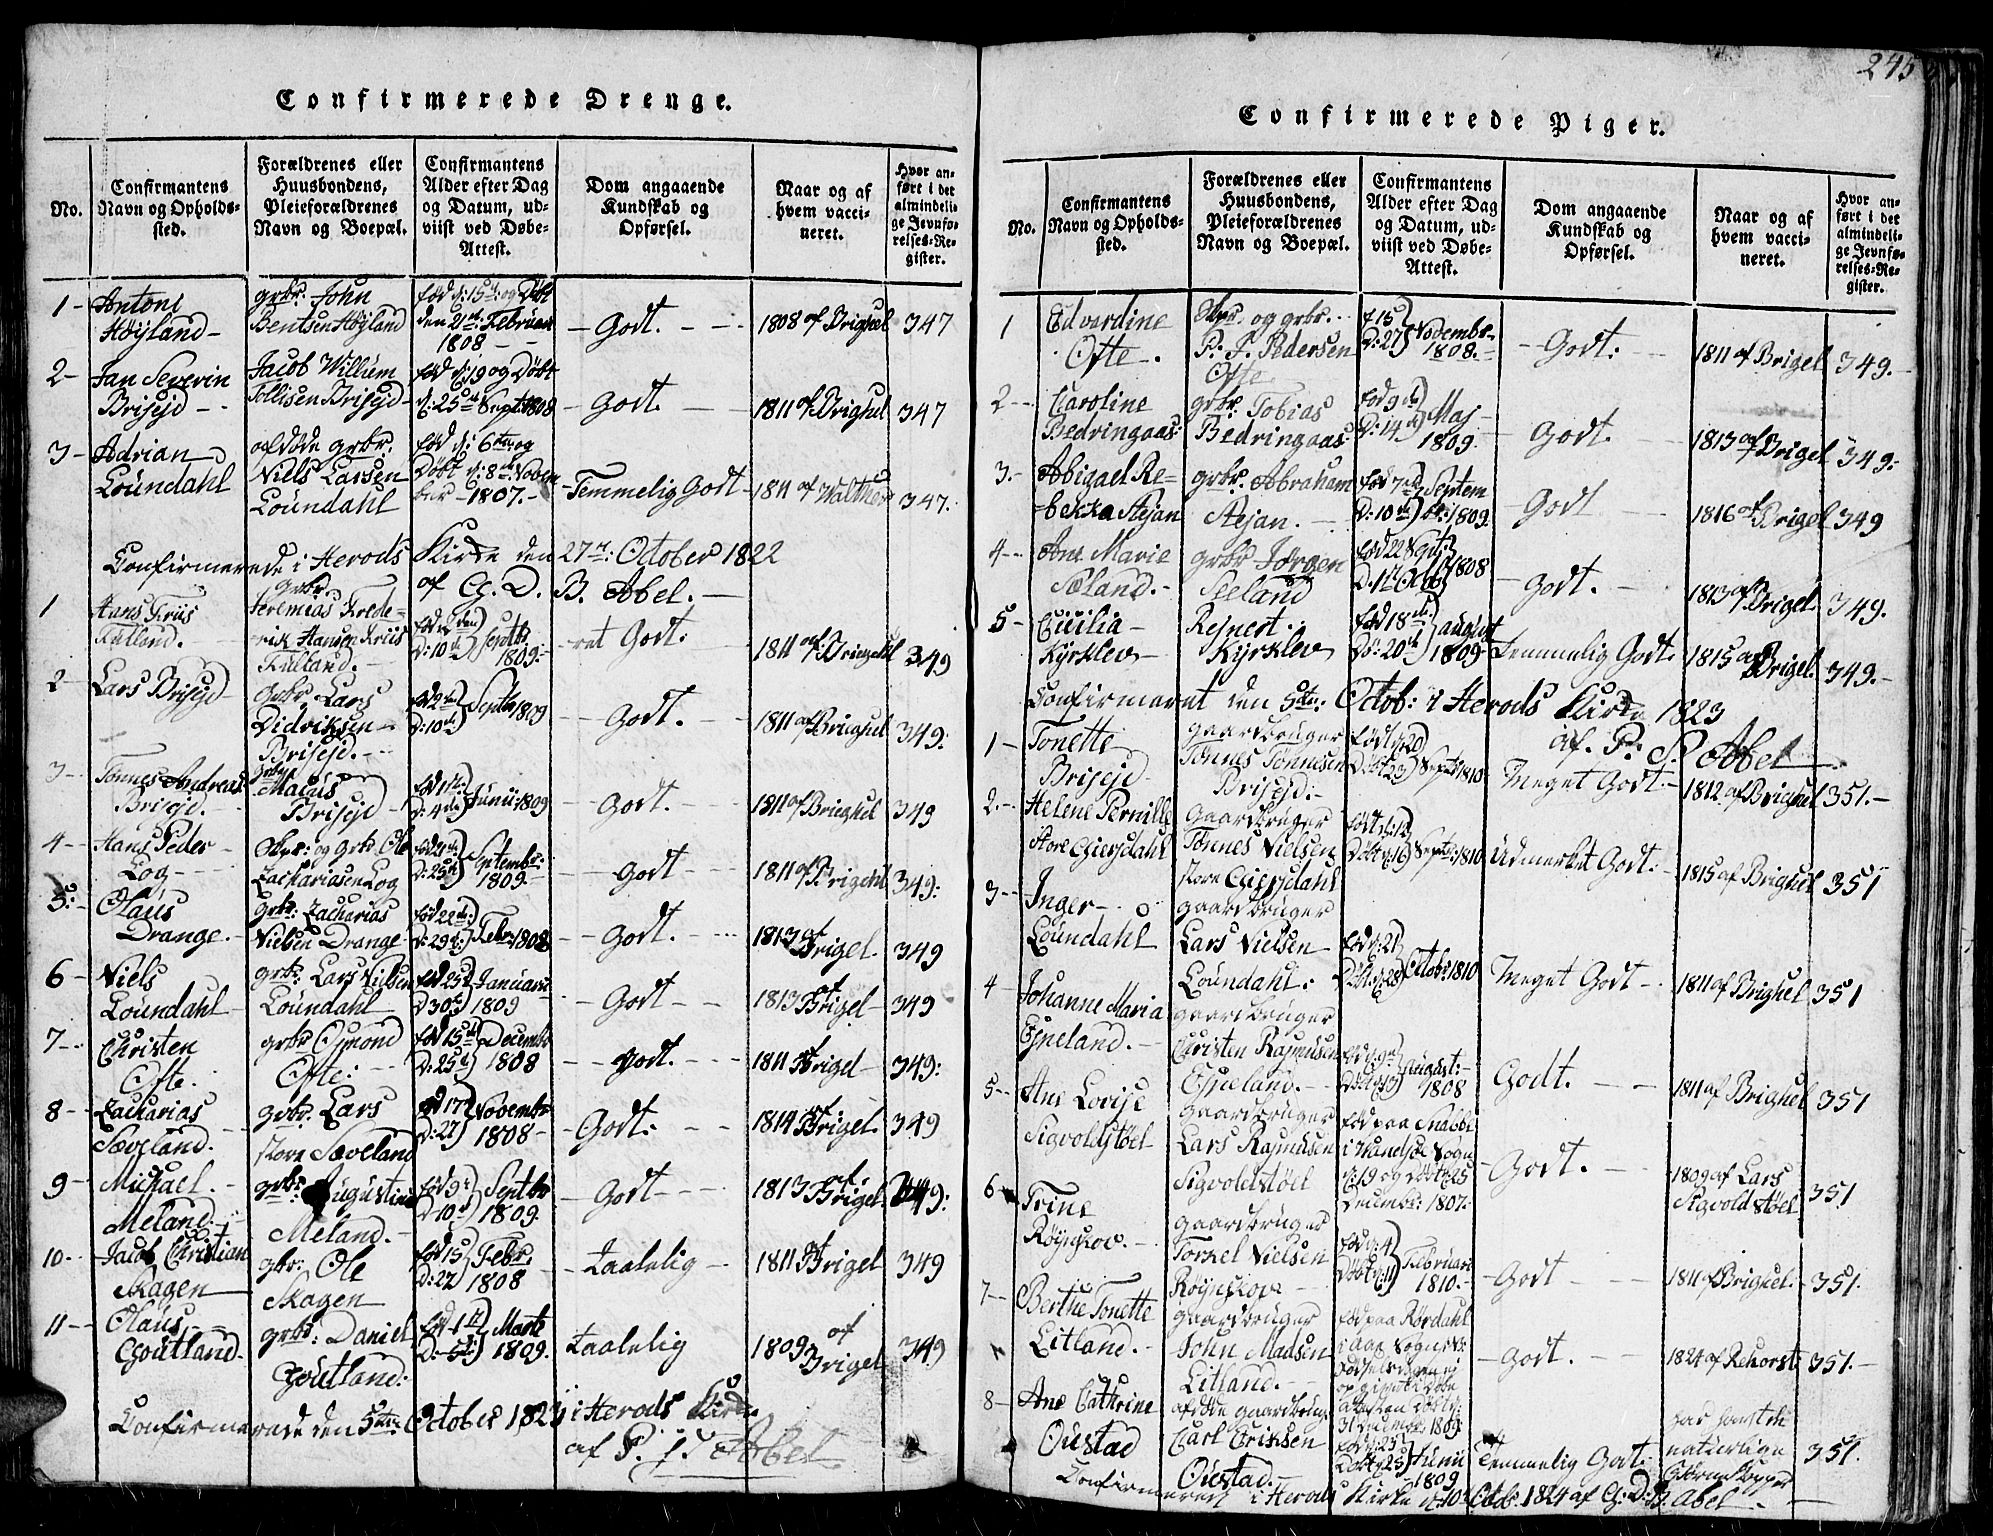 245
Confirmerede Drenge.
No.
Confirmantens Navn og Opholdssted.
Forældrenes eller Huusbondens, Pleieforældrenes Navn og Boepæl.
Confirmantens Alder efter Dag og Datum, udviist ved Døbe-Attest.
Dom angaaende Kundskab og Opførsel.
Naar og af hvem vaccineret.
Hvor anført i det almindelige Jevnførelses-Register.
1- Antoni Høyland- grbr. John Bentsen Høyland fød d: 15 og Døbt den 21 Februar 1808 - Godt. - 1808 af Brighel 347
2- Jan Severin Brisejd- Jacob Willum Tollisen Brisejd- fød d: 19 og Døbt d: 25 Sept: 1808 - Godt. - 1811 af Brighel 347
3- Adrian Loundahl afdøde grbr. Niels Larsen Loundahl fød d: 6 og Døbt d: 8 November 1807.- Temmelig Godt- 1811 af Walther 347.
Confirmerede i Herods Kirke den 27 October 1822
af C. D. B. Abel.-
1 Hans Friis Kulland.- grbr. Jeremias Frederik Hansen Friis Kulland.- D: 10 Septbr 1809.- ret Godt. 1811 af Brighel 349
2- Lars Brisejd grbr Lars Didriksen Brisejd.- fød 2 D: 10 Septbr 1809 - Godt. - 1811 af Brighel 349:
3- Tønnes Andreas Brisejd. grbr Matias Brisejd fød 1 D: 4 Junii 1809 - Godt. - 1811 af Brighel 349
4- Hans Peder Log- grbr Ole Zachariasen Log D: 25 Septembr: 1809.- - Godt - 1811 af Brighel 349:
5:- Olaus Drange.- grbr. Zacharias Nielsen Drange- fød 22 D: 29 Febr: 1808 - Godt. - 1813 af Brigel. 349
6- Niels Loundahl- grbr. Lars Nielsen Loundahl- fød 25 D: 30 Januari 1809 - Godt - 1813 af Brigel- 349
7- Christen Ofte. grbr Osmond Ofte:- fød 15 D: 25 Decembr 1808 - Godt. - 1811 af Brigel- 349:
8- Zacharias Sæveland. grbr. Lars store Sæveland fød 17 D: 27 Novembr 1808 - Godt: - 1814 af Brigel. 349
9- Michael Meland.- grbr. Augustinus Meland.- fød 9 D: 10 Septbr 1809. - Godt - 1813 af Brigel. 349:
10- Jacob Christian Skagen grbr: Ole Skagen fød 15 D: 22 Febr. 1808 - taalelig- 1811 af Brigel 349
11- Olaus Goutland- grbr: Daniel Goutland: fød 1 Marts 1809. taalelig 1809 af Brigel. 349
Confirmerede den 5 October 1823 i Herods Kirke
af P. S. Abel
Confirmerede Piger.
No.
Confirmantens Navn og Opholdssted.
Forældrenes eller Huusbondens, Pleieforældrenes Navn og Boepæl.
Confirmantens Alder efter Dag og Datum, udviist ved Døbe-Attest.
Dom angaaende Kundskab og Opførsel.
Naar og af hvem vaccineret.
Hvor anført i det almindelige Jevnførelses-Register.
1 Edvardine Ofte. og grbr. P. S. Pedersen Ofte f 15 D: 27 Novembr. 1808.- - Godt: - 1811 af Brigel 349.-
2- Caroline Bedringaas grbr. Tobias Bedringaas fød 9 D: 14 Maj 1809. Godt. - 1813 af Brigel 349:
3.- Abigael Rebekka Stejan grbr. Abraham Stejan.- fød 7 D: 10 Septembr: 1809. - Godt - 1816 af Brigel 349
4- Ane Marie Sæland.- grbr Jørgen Seeland fød 22 Sept: 1808 - Godt. - 1813 af Brigel. 349.
5- Cicilia Kyrklev- Rejnert Kyrklev fød 18 Dø: 20 August 1809 Temmelig Godt. 1815 af Brigel. 349.-
Confirmeret den 5 Octob: i Herods Kirke 1823
af. P. S. Abel
1- Tonette Brisejd gaardbruger Tønnes Tønnesen Brisejd:- født d: 20 Døbt 23 Septr 1810 Meget Godt.- 1812 af Brighel 351.-
2.- Helene Pernille store Eiersdahl Gaardbruger Tønnes Nielsen store Eiersdahl født d: 12 Døbt d: 16 Septr 1810 Udmerket Godt: 1815 af Brighel 351
3- Inger Loundahl gaardbruger Lars Nielsen Loundahl: fød d: 21 Døbt d: 28 Octobr 1810 Meget Godt- 1811 af Brighel 351
4- Johanne Maria Egneland.- gaardbruger Christen Rasmusen Egneland.- fød d: 9 Døbt d: 13 August:- 1808 Godt. - 1811 af Brighel 351
5- Ane Lovise Sigvoldstøel gaardbruger Lars Rasmusen Sigvoldstøel fød paa Snabbe i Vandsøe Sogn d: 19 og Døbt d: 25 Decembr: 1807. - Godt. - 1809 af Lars Sigvoldstøel 351
6- Trine Røynskov.- gaardbruger Torkel Nielsen Røynskov- fød d: 4 Døbt d: 11 Februari 1810.- - Godt - 1811 af Brighel. 351.
7- Berthe Tonette Litland.- gaardbruger John Madsen Litland.- fød paa Rørdahl i Aas Sogn 31 Decembr. 1809. - Godt. - 1824 af Rehorst: 351.-
8- Ane Cathrine Oustad afdøde gaardbruger Carl Eriksen Oustad.- fød d: 23 Døbt d: 25 Junii 1809 Temmelig Godt. har havt de naturlige Børnekopper 351.
Confirmeret i Herods Kirke d: 10 Octb. 1824 af C: D: B. Abel.-